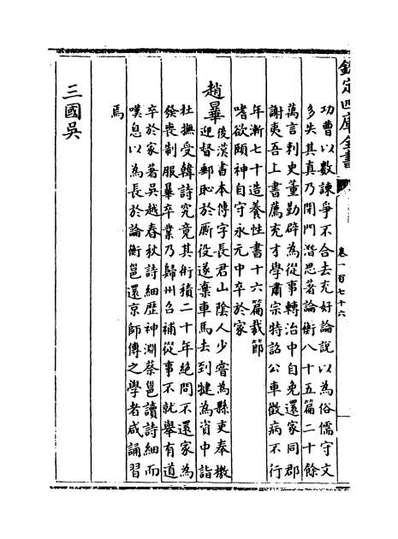 欽定四庫全書
卷一百七十六
功曹以數諫爭不合去充好論說以為俗儒守文
多失其真乃閉門潛思著論衡八十五篇二十餘
萬言刺史董勤辟為從事轉治中自免還家同郡
謝夷吾上書薦充才學肅宗特詔公車徵病不行
年漸七十造養性書十六篇裁節
嗜欲頤神自守永元中卒於家
趙曄
後漢書本傳字長君山陰人少嘗為縣吏奉檄
迎督郵恥於厮役遂棄車馬去到犍為資中詣
杜撫受韓詩究竟其術積二十年絶問不還家為
發喪制服曄卒業乃歸州召補從事不就舉有道
卒於家著吳越春秋詩細歴神淵蔡邕讀詩細而
嘆息以為長於論衡邕還京師傳之學者咸誦習
焉
三國吳